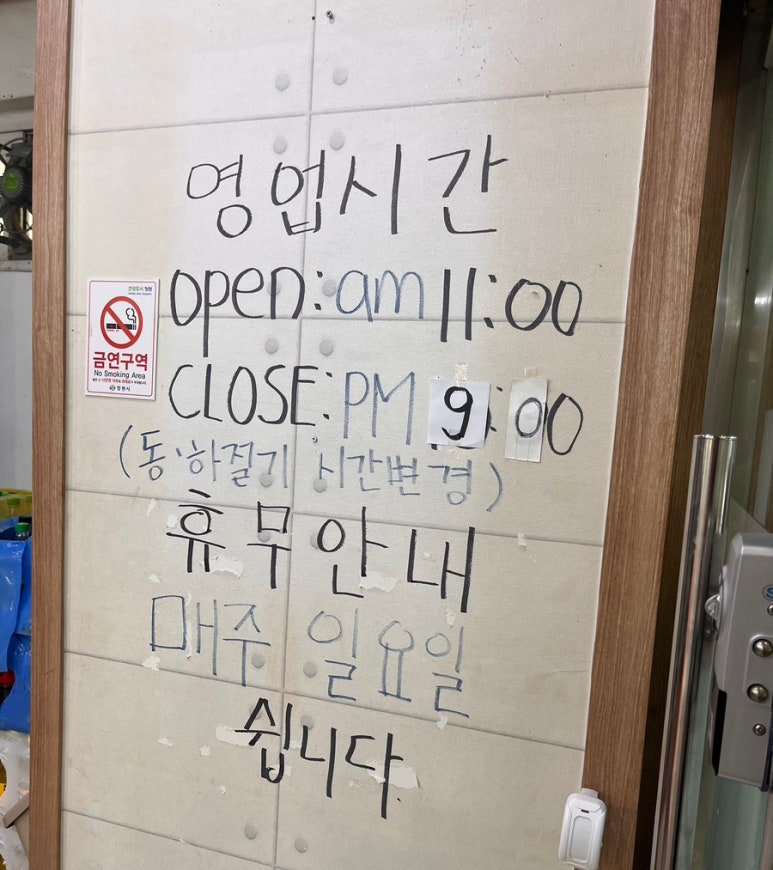 영업시간
open: am 11:00
CLOSE: PM 9:00
(동·하절기 시간변경)
휴무안내
매주 일요일
쉽니다
금연구역
No Smoking Area
창원시